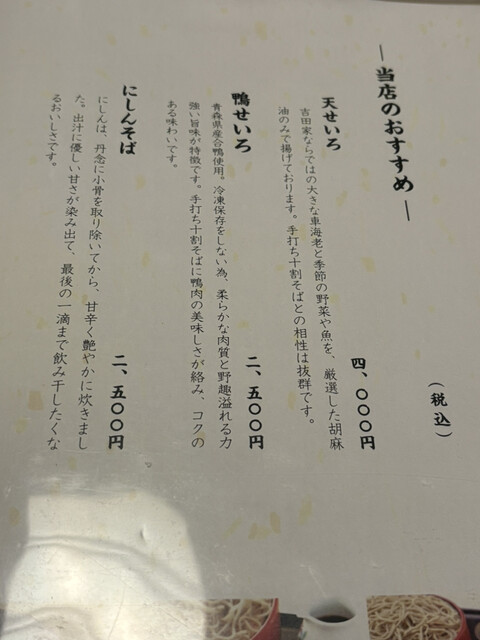 （税込）
― 当店のおすすめ ―
天せいろ 四、〇〇〇円
吉田家ならではの大きな車海老と季節の野菜や魚を、厳選した胡麻
油のみで揚げております。手打ち十割そばとの相性は抜群です。
鴨せいろ 二、五〇〇円
青森県産合鴨使用。冷凍保存をしない為、柔らかな肉質と野趣溢れる力
強い旨味が特徴です。手打ち十割そばに鴨肉の美味しさが絡み、コクの
ある味わいです。
にしんそば 二、五〇〇円
にしんは、丹念に小骨を取り除いてから、甘辛く艶やかに炊きまし
た。出汁に優しい甘さが染み出て、最後の一滴まで飲み干したくな
るおいしさです。